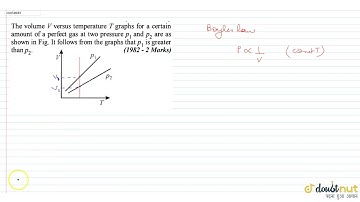 The volume V versus temperature T graphs for a certain
amount of a perfect gas at two pressure p₁ and p₂ are as
shown in Fig. It follows from the graphs that p₁ is greater
than p₂ (1982 - 2 Marks)
V
p₁
p₂
T
Boyles law
P ∝ 1/V (const T)
doubtnut